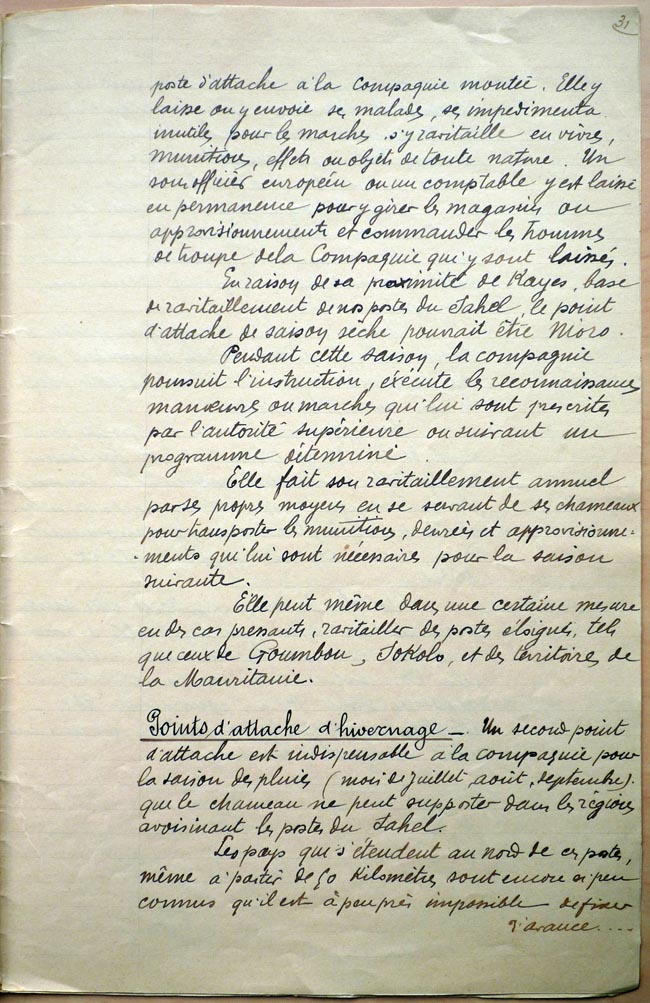 31
poste d'attache à la compagnie montée. Elle y
laisse ou y envoie ses malades, ses impedimenta
inutiles pour les marches s'y ravitaille en vivres,
munitions, effets ou objets de toute nature. Un
sous officier européen ou un comptable y est laissé
en permanence pour y gérer les magasins ou
approvisionnements et commander les hommes
de troupe de la Compagnie qui y sont laissés.
En raison de sa proximité de Kayes, base
de ravitaillement de nos postes du Sahel, le point
d'attache de saison sèche pourrait être Nioro.
Pendant cette saison, la compagnie
poursuit l'instruction, exécute les reconnaissances
manœuvres ou marches qui lui sont prescrites
par l'autorité supérieure ou suivant un
programme déterminé
Elle fait son ravitaillement annuel
par ses propres moyens en se servant de ses chameaux
pour transporter les munitions, denrées et approvisionne-
-ments qui lui sont nécessaires pour la saison
suivante.
Elle peut même dans une certaine mesure
en des cas pressants, ravitailler des postes éloignés, tels
que ceux de Goumbou, Sokolo, et des territoires de
la Mauritanie.
Points d'attache d'hivernage _ Un second point
d'attache est indispensable à la compagnie pour
la saison des pluies (mois de Juillet, août, septembre).
que le chameau ne peut supporter dans les régions
avoisinant les postes du Sahel.
Les pays qui s'étendent au nord de ces postes,
même à partir de 50 Kilomètres sont encore si peu
connus qu'il est à peu près impossible de fixer
d'avance....